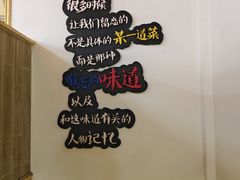 很多时候
让我们留恋的
不是具体的某一道菜
而是那种
难忘的味道
以及
和这味道有关的
人物记忆